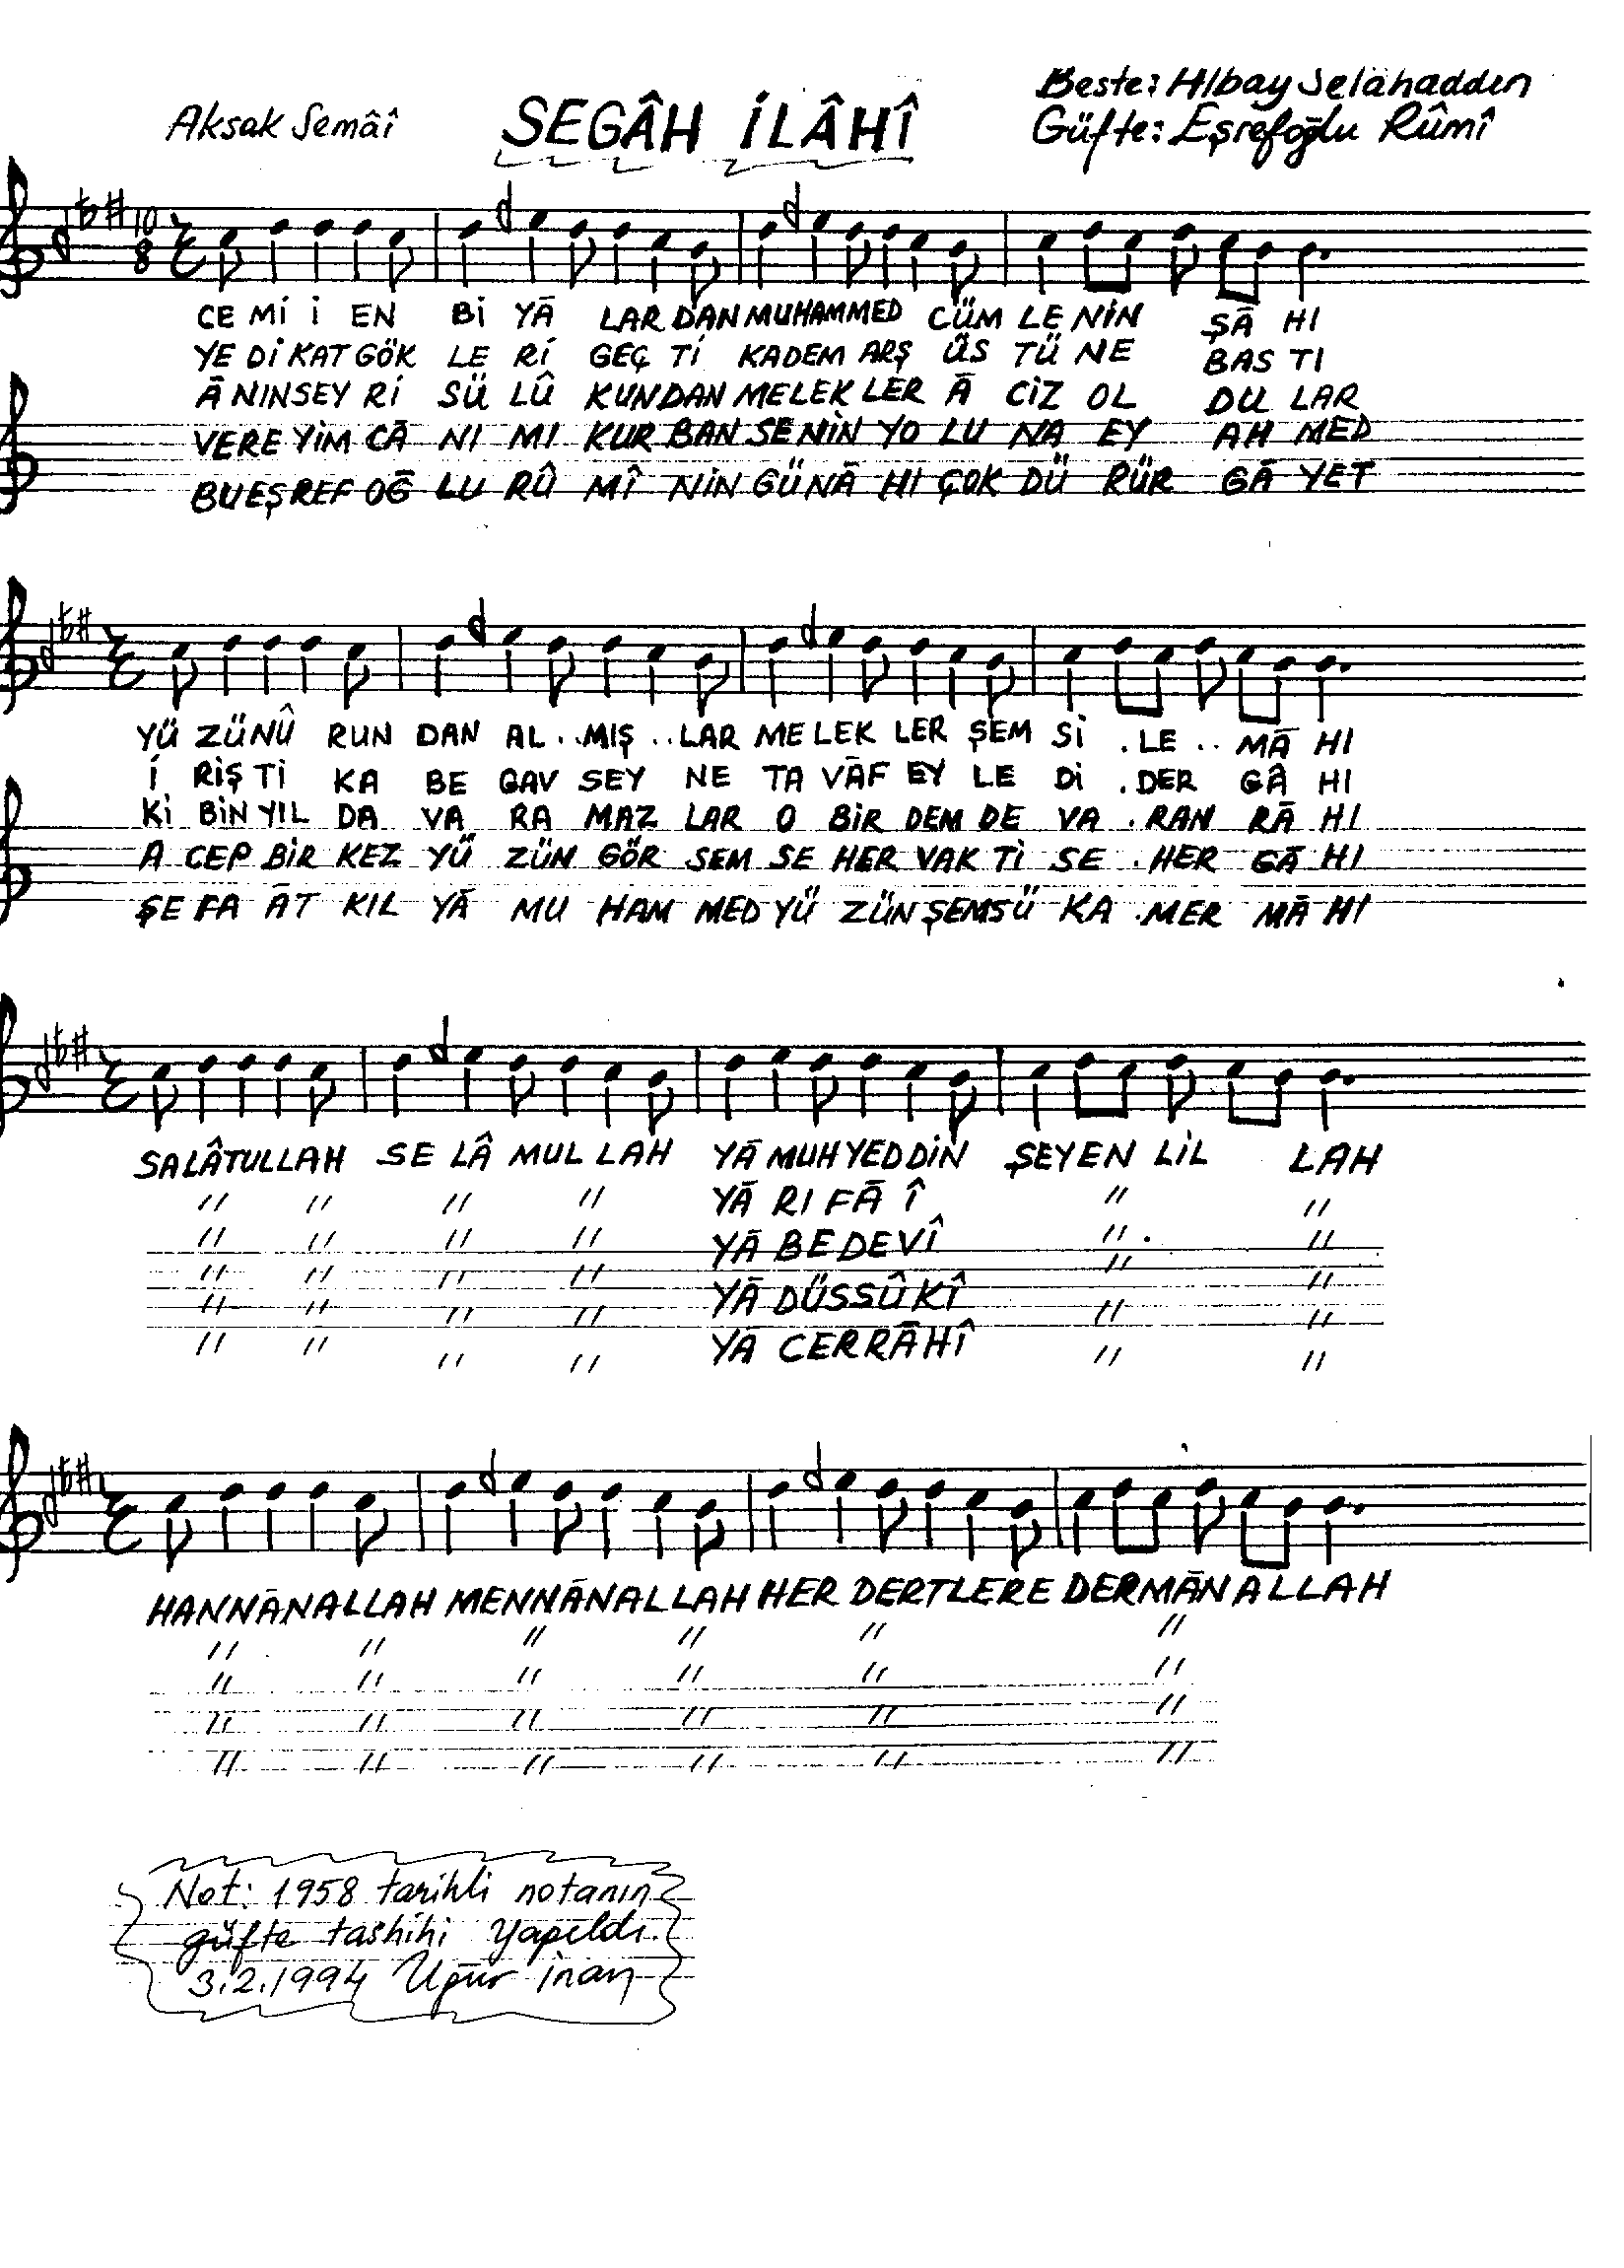 Aksak Semâî
SEGÂH İLÂHÎ
Beste: Albay Selâhaddin
Güfte: Eşrefoğlu Rûmî
10
8
CE Mİ İ EN Bİ YĀ LAR DAN MUHAMMED CÜM LE NİN ŞĀ HI
YE Dİ KAT GÖK LE Rİ GEÇ Tİ KADEM ARŞ ÜS TÜ NE BAS TI
Ā NIN SEY Rİ SÜ LÛ KUN DAN MELEK LER Ā CİZ OL DU LAR
VERE YİM CĀ NI MI KUR BAN SE NİN YO LU NA EY AH MED
BU EŞ REF OĞ LU RÛ MÎ NİN GÜ NĀ HI ÇOK DÜ RÜR GĀ YET
YÜ ZÜ NÛ RUN DAN AL..MIŞ..LAR ME LEK LER ŞEM Sİ .LE.. MĀ HI
İ RİŞ Tİ KA BE GAV SEY NE TA VĀF EY LE Dİ .DER GÂ HI
Kİ BİN YIL DA VA RA MAZ LAR O BİR DEM DE VA .RAN RĀ HI
A CEP BİR KEZ YÜ ZÜN GÖR SEM SE HER VAK Tİ SE .HER GĀ HI
ŞE FA ĀT KIL YĀ MU HAM MED YÜ ZÜN ŞEMSÜ KA .MER MĀ HI
SALÂTULLAH SE LÂ MUL LAH YĀ MUH YED DİN ŞEY EN LİL LAH
" " " " YĀ RI FĀ Î " "
" " " " YĀ BEDEVÎ " . "
" " " " YĀ DÜSSÛKÎ " "
" " " " YĀ CERRĀHÎ " "
HANNĀNALLAH MENNĀNALLAH HER DERTLERE DERMĀN ALLAH
" " " " " "
" " " " " "
" " " " " "
" " " " " "
Not: 1958 tarihli notanın
güfte tashihi yapıldı.
3.2.1994 Uğur İnan